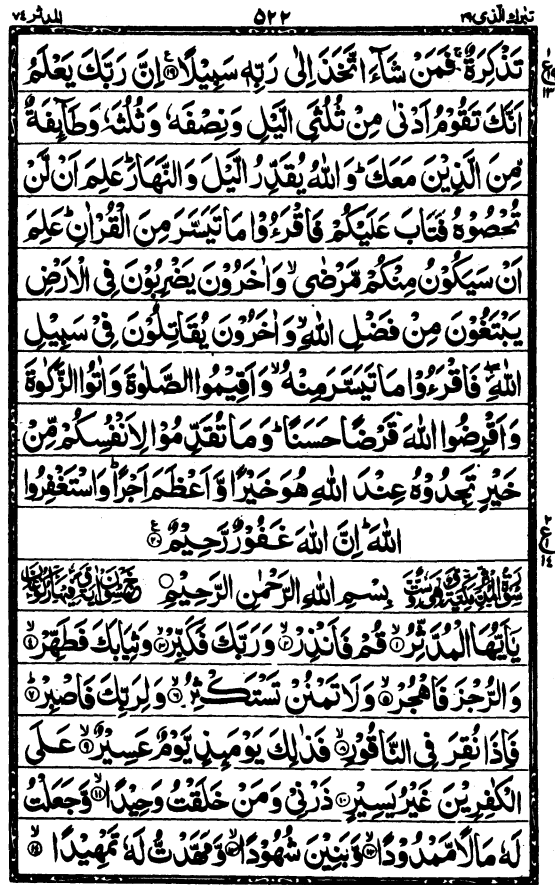 تبٰرك الذی ۲۹ ۵۲۲ المدثر ۷۴
تَذْكِرَةٌ ۚ فَمَنْ شَآءَ اتَّخَذَ اِلٰى رَبِّهٖ سَبِيْلًا ۱۹ اِنَّ رَبَّكَ يَعْلَمُ
اَنَّكَ تَقُوْمُ اَدْنٰى مِنْ ثُلُثَيِ الَّيْلِ وَنِصْفَهٗ وَثُلُثَهٗ وَطَآئِفَةٌ
مِّنَ الَّذِيْنَ مَعَكَ ؕ وَاللّٰهُ يُقَدِّرُ الَّيْلَ وَالنَّهَارَ ؕ عَلِمَ اَنْ لَّنْ
تُحْصُوْهُ فَتَابَ عَلَيْكُمْ فَاقْرَءُوْا مَا تَيَسَّرَ مِنَ الْقُرْاٰنِ ؕ عَلِمَ
اَنْ سَيَكُوْنُ مِنْكُمْ مَّرْضٰى ۙ وَاٰخَرُوْنَ يَضْرِبُوْنَ فِى الْاَرْضِ
يَبْتَغُوْنَ مِنْ فَضْلِ اللّٰهِ ۙ وَاٰخَرُوْنَ يُقَاتِلُوْنَ فِىْ سَبِيْلِ
اللّٰهِ ۖ فَاقْرَءُوْا مَا تَيَسَّرَ مِنْهُ ۙ وَاَقِيْمُوا الصَّلٰوةَ وَاٰتُوا الزَّكٰوةَ
وَاَقْرِضُوا اللّٰهَ قَرْضًا حَسَنًا ؕ وَمَا تُقَدِّمُوْا لِاَنْفُسِكُمْ مِّنْ
خَيْرٍ تَجِدُوْهُ عِنْدَ اللّٰهِ هُوَ خَيْرًا وَّاَعْظَمَ اَجْرًا ؕ وَاسْتَغْفِرُوا
اللّٰهَ ؕ اِنَّ اللّٰهَ غَفُوْرٌ رَّحِيْمٌ ۲۰
بِسْمِ اللّٰهِ الرَّحْمٰنِ الرَّحِيْمِ
يٰٓاَيُّهَا الْمُدَّثِّرُ ۱ قُمْ فَاَنْذِرْ ۲ وَرَبَّكَ فَكَبِّرْ ۳ وَثِيَابَكَ فَطَهِّرْ ۴
وَالرُّجْزَ فَاهْجُرْ ۵ وَلَا تَمْنُنْ تَسْتَكْثِرُ ۶ وَلِرَبِّكَ فَاصْبِرْ ۷
فَاِذَا نُقِرَ فِى النَّاقُوْرِ ۸ فَذٰلِكَ يَوْمَئِذٍ يَّوْمٌ عَسِيْرٌ ۹ عَلَى
الْكٰفِرِيْنَ غَيْرُ يَسِيْرٍ ۱۰ ذَرْنِىْ وَمَنْ خَلَقْتُ وَحِيْدًا ۱۱ وَّجَعَلْتُ
لَهٗ مَالًا مَّمْدُوْدًا ۱۲ وَّبَنِيْنَ شُهُوْدًا ۱۳ وَّمَهَّدْتُّ لَهٗ تَمْهِيْدًا ۱۴